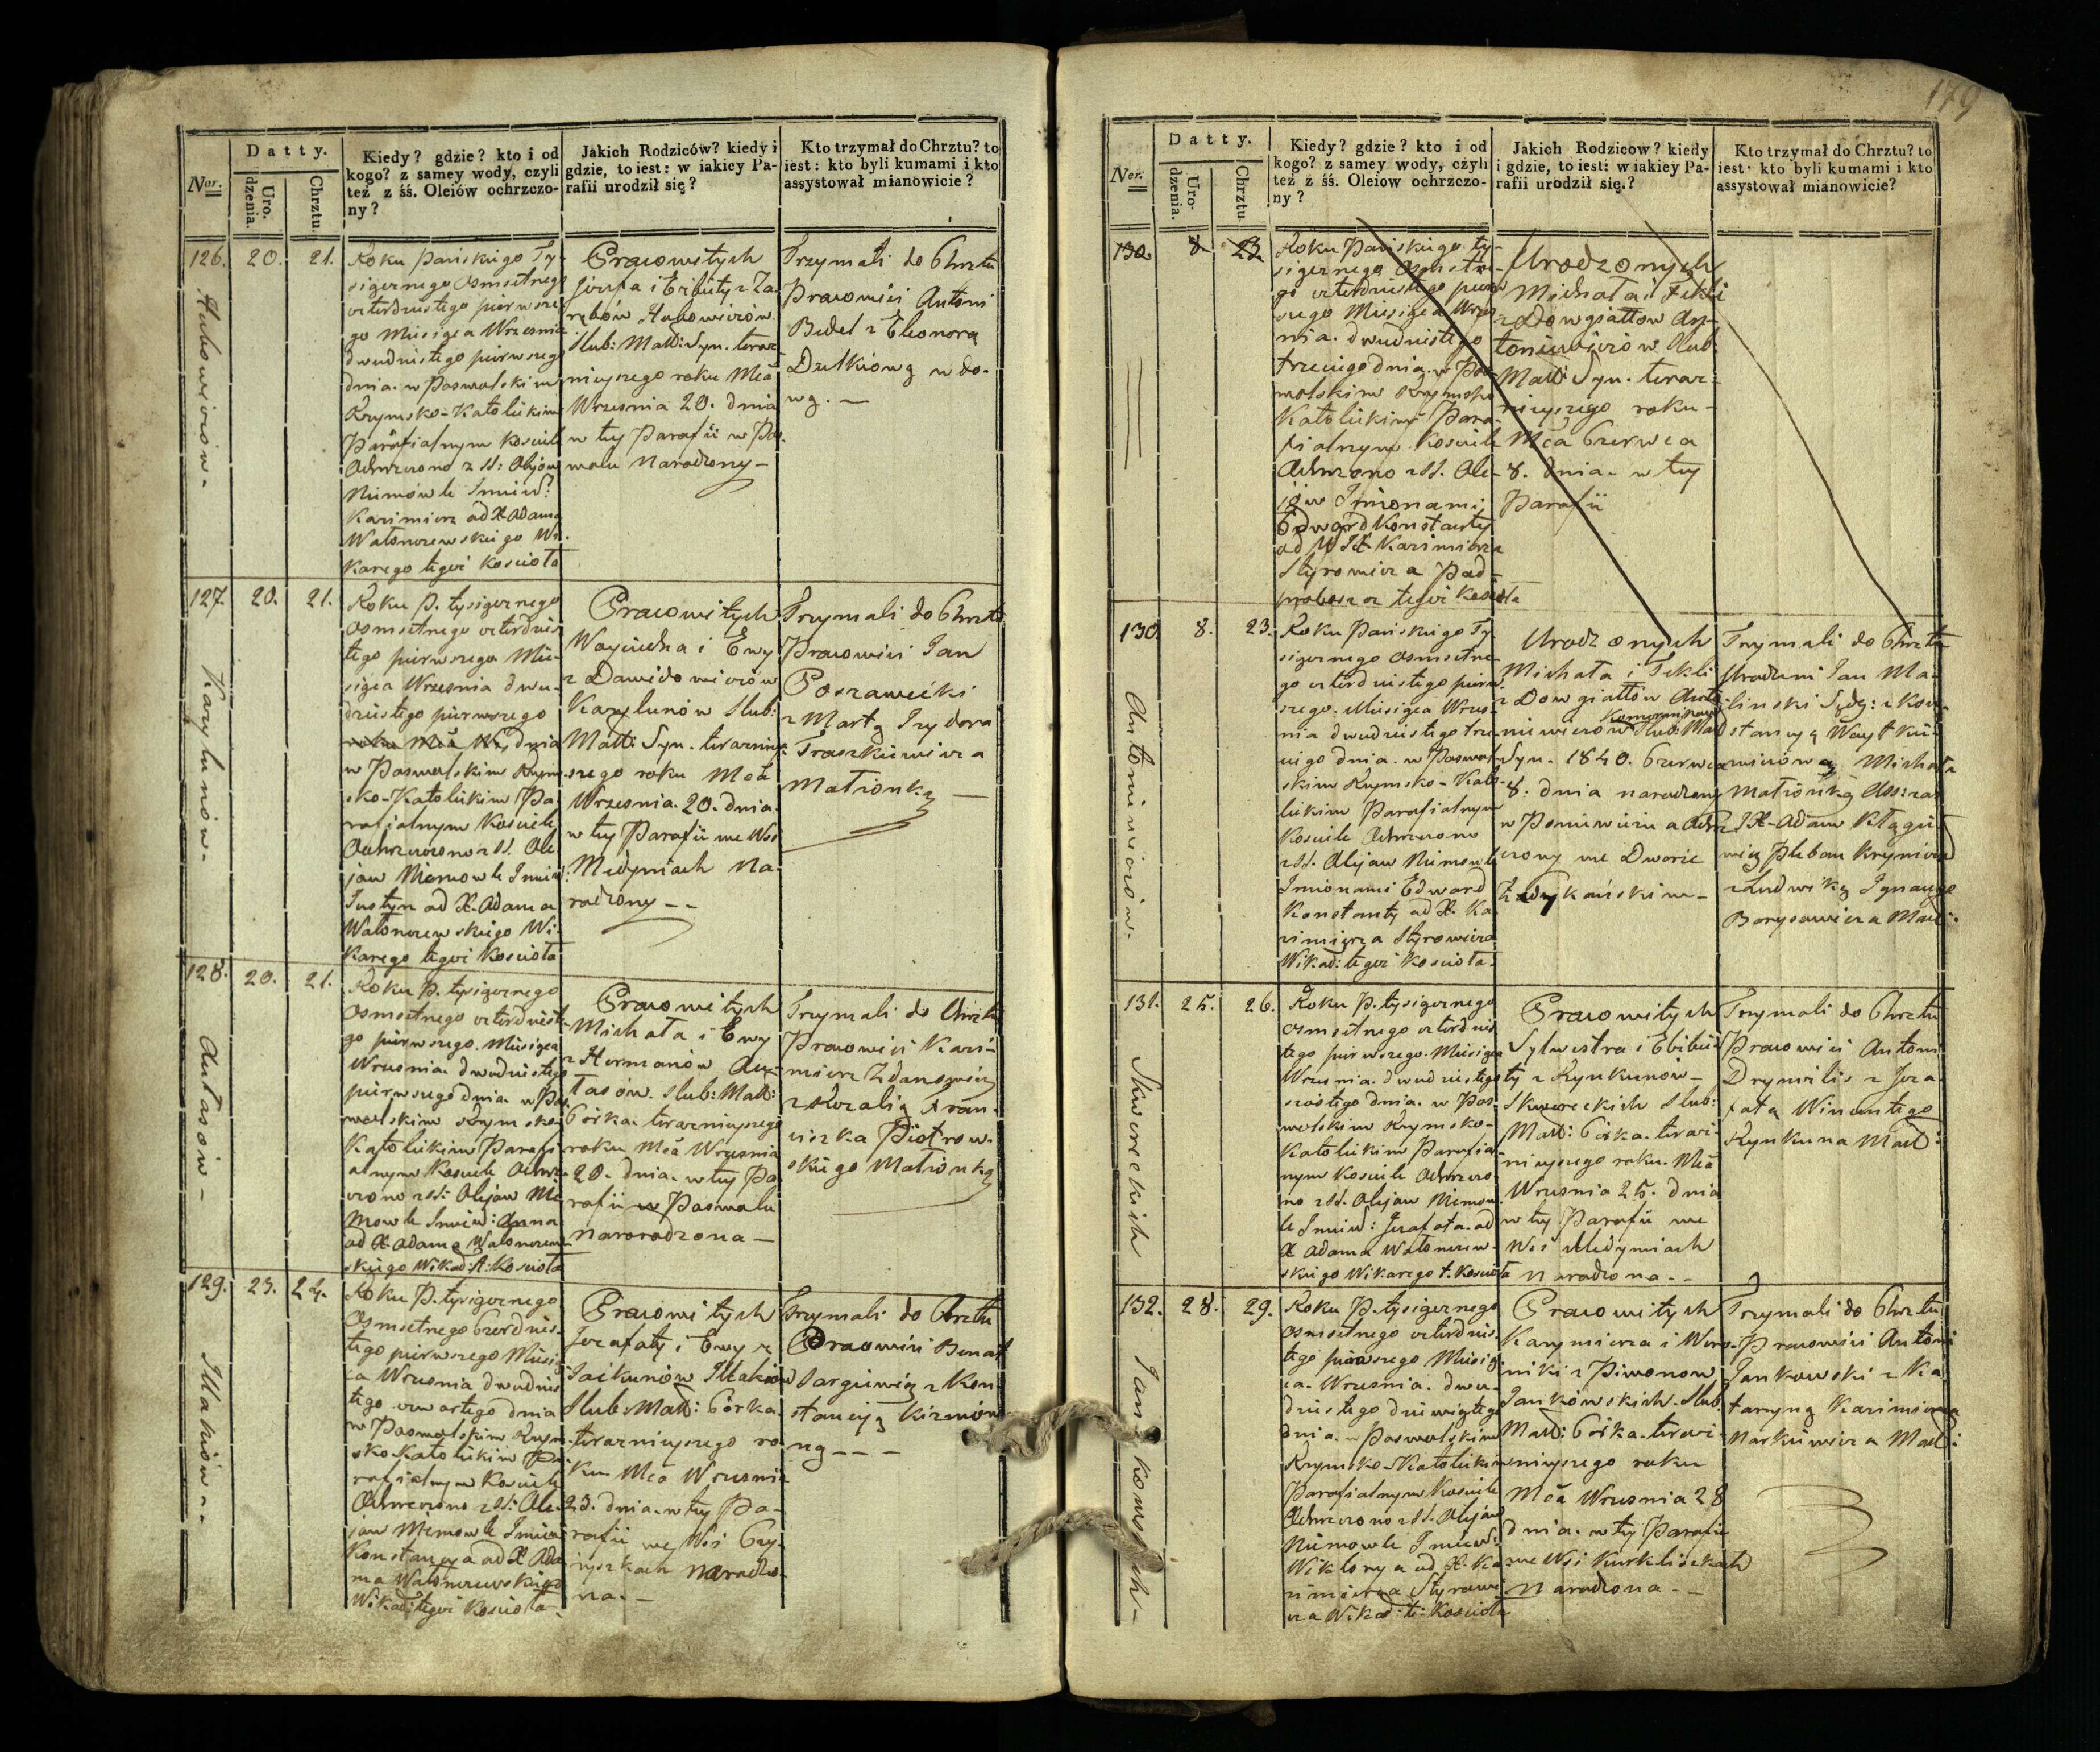 179
Nar.
Datty.
Uro.
dzenia.
Chrztu.
Kiedy? gdzie? kto i od
kogo? z samey wody, czyli
też z śś. Oleiów ochrzczo-
ny?
Jakich Rodziców? kiedy i
gdzie, to iest: w iakiey Pa-
rafii urodził się?
Kto trzymał do Chrztu? to
iest: kto byli kumami i kto
assystował mianowicie?
126.
20.
21.
Roku Pańskiego Ty-
siącznego Osmsetnego
czterdziestego pierwsze
go Miesiąca Wrzesnia
dwudziestego pierwszego
dnia w Poswolskim
Rzymsko-Katolickim
Parafialnym Kosciele
Ochrzczono z SS: Olejow
Niemowle Imien:
Kazimierz od X Adama
Wi
karego tegoż Kosciola
Pracowitych
Józefa i
Slub: Małż: Syn. teraz
nieyszego roku Mca
Wrzesnia 20. dnia
w tey Parafii w Pos
wolu Narodzony -
Trzymali do Chrztu
Pracowici Antoni
z Eleonorą
wą. -
127
20.
21.
Roku P. tysiącznego
Osmsetnego czterdzies
tego pierwszego Mie-
siąca Wrzesnia dwu-
dziestego pierwszego
dnia
w Poswolskim Rzym
sko-Katolickim Pa
rafialnym Kosciele
Ochrzczono z SS. Ole
jow Niemowle Imien
Justyn od X. Adama
Wi-
karego tegoż Kosciola
Karylunów.
Pracowitych
Woyciecha i Ewy
z Dawidowiczów
Karylunów Slub:
Małż: Syn. terazniey
szego roku Mca
Wrzesnia. 20. dnia
w tey Parafii we Wsi
Medyniach Na
rodzony --
Trzymali do Chrztu
Pracowici Jan
z Martą Izydora
Traszkiewicza
Małżonką -
128.
20.
21.
Roku P. tysiącznego
Osmsetnego czterdzieste
go pierwszego. Miesiąca
Wrzesnia. dwudziestego
pierwszego dnia. w Pos
wolskim Rzymsko
Katolickim Parafi
alnym Kosciele Ochrz
czono z SS: Olejow Nie
mowle Imien: Anna
od X. Adama
skiego Wikar: t: Kosciola
Autasów -
Pracowitych
Michała i Ewy
z Hermanów Au-
tasów. Slub: Małż:
Córka. teraznieyszego
roku Mca Wrzesnia
20. dnia. w tey Pa
rafii w Poswolu
Nawrodzona -
Trzymali do Chrztu
Pracowici Kazi-
mierz Zdanowicz
z Rozalią Fran-
ciszka Piotrow-
skiego Małżonką
129.
23.
24.
Roku P. tysiącznego
Osmsetnego Czterdzies
tego pierwszego Miesią
ca Wrzesnia dwudzies
tego czwartego dnia
w Poswolskim Rzym-
sko-Katolickim Pa
rafialnym Kosciele
Ochrzczono z SS: Ole-
jow Niemowle Imien
Konstancya od X Ada
ma
Wikar: tegoż Kosciola
Pracowitych
Jozafaty i Ewy z
Slub: Małż: Córka.
teraznieyszego ro
ku. Mca Wrzesnia
23. dnia. w tey Pa-
rafii we Wsi
narodzo
na. -
Trzymali do Chrztu
Pracowici
z Kon-
stancyą
ną - - -
Ner.
Datty.
Uro-
dzenia.
Chrztu
Kiedy? gdzie? kto i od
kogo? z samey wody, czyli
też z śś. Oleiow ochrzczo-
ny?
Jakich Rodzicow? kiedy
i gdzie, to iest: w iakiey Pa-
rafii urodził się.?
Kto trzymał do Chrztu? to
iest: kto byli kumami i kto
assystował mianowicie?
130
8
23
Roku Pańskiego ty-
siącznego Osmsetne-
go czterdziestego pierw
szego Miesiąca Wrzes-
nia. dwudziestego
trzeciego dnia. w Pos-
wolskim Rzymsko
Katolickim Para-
fialnym Kosciele
Ochrzczono z SS. Ole-
jów Imionami
Edward Konstanty
od W JX Kazimierza
Styrowicza Pod-
proboszcza tegoż Kosciola
Urodzonych
Michała i Tekli
z Dowgiałłow An-
toniewiczów Slub:
Małż: Syn. teraz-
nieyszego roku -
Mca Czerwca
8. dnia. w tey
Parafii
130
8.
23.
Roku Pańskiego Ty-
siącznego Osmsetne-
go czterdziestego pierw-
szego. Miesiąca Wrzes-
nia dwudziestego trze
ciego dnia. w Poswol-
skim Rzymsko-Kato
lickim Parafialnym
Kosciele Ochrzczono
z SS. Olejow Niemowle
Imionami Edward
Konstanty od X. Ka
zimierza Styrowicza
Wikar: tegoż Kosciola.
Antoniewiczów.
Urodzonych
Michała i Tekli
z Dowgiałłów Anto
niewiczów Slub: Małż
Syn. 1840. Czerwca
8. dnia narodzony
w Poniewieżu a Ochrz
czony we Dworze
Trzymali do Chrztu
Urodzeni Jan Ma-
linski Sędz: z Kon-
stancyą Woytkie-
wiczową Michała
Małżonką
JX. Adam
Pleban
z Ludwiką Ignacego
Borysowicza Małż:
131.
25.
26.
Roku P. tysiącznego
Osmsetnego czterdzies
tego pierwszego. Miesiąca
Wrzesnia. dwudziestego
szóstego dnia. w Pos-
wolskim Rzymsko-
Katolickim Parafial
nym Kosciele Ochrzczo
no z SS. Olejow Niemow
le Imien: Jozafata. od
X Adama
skiego Wikarego t. Kosciola
Skworeckich
Pracowitych
Sylwestra i Elżbie
ty z Rynkunow-
Skworeckich Slub:
Małż: Córka. teraz-
nieyszego roku. Mca
Wrzesnia 25. dnia
w tey Parafii we
Wsi Medyniach
Narodzona. --
Trzymali do Chrztu
Pracowici Antoni
Drymilis z Joza
fatą Wincentego
Rynkuna Małż:
132.
28.
29.
Roku P. tysiącznego
Osmsetnego czterdzies
tego pierwszego Miesią
ca. Wrzesnia. dwu-
dziestego dziewiątego
dnia. w Poswolskim
Rzymsko-Katolickim
Parafialnym Kosciele
Ochrzczono z SS. Olejow
Niemowle Imien:
Wiktorya od X. Ka
zimierza Styrowi
cza Wikar: t: Kosciola
Jankowskich -
Pracowitych
Kazymierza i Wero-
niki z Piwonow
Jankowskich. Slub:
Małż: Córka. teraz-
nieyszego roku
Mca Wrzesnia 28
dnia. w tey Parafii
we Wsi
Narodzona --
Trzymali do Chrztu
Pracowici Antoni
Jankowski z Ka
taryną Kazimierza
Narkiewicza Małż: